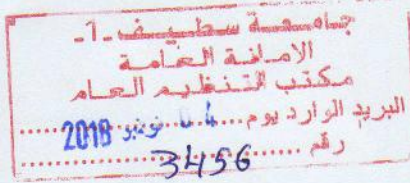 جامعة سطيف -1-
الامانة العامة
مكتب التنظيم العام
البريد الوارد يوم ..... 04 نوفمبر 2018
رقم ..... 3456 .....